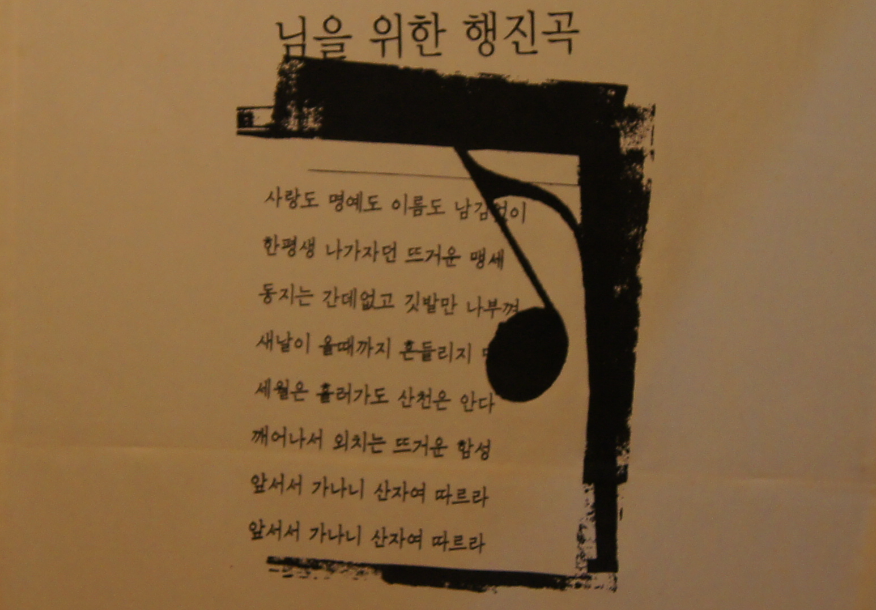 님을 위한 행진곡
사랑도 명예도 이름도 남김없이
한평생 나가자던 뜨거운 맹세
동지는 간데없고 깃발만 나부껴
새날이 올때까지 흔들리지
세월은 흘러가도 산천은 안다
깨어나서 외치는 뜨거운 함성
앞서서 가나니 산자여 따르라
앞서서 가나니 산자여 따르라